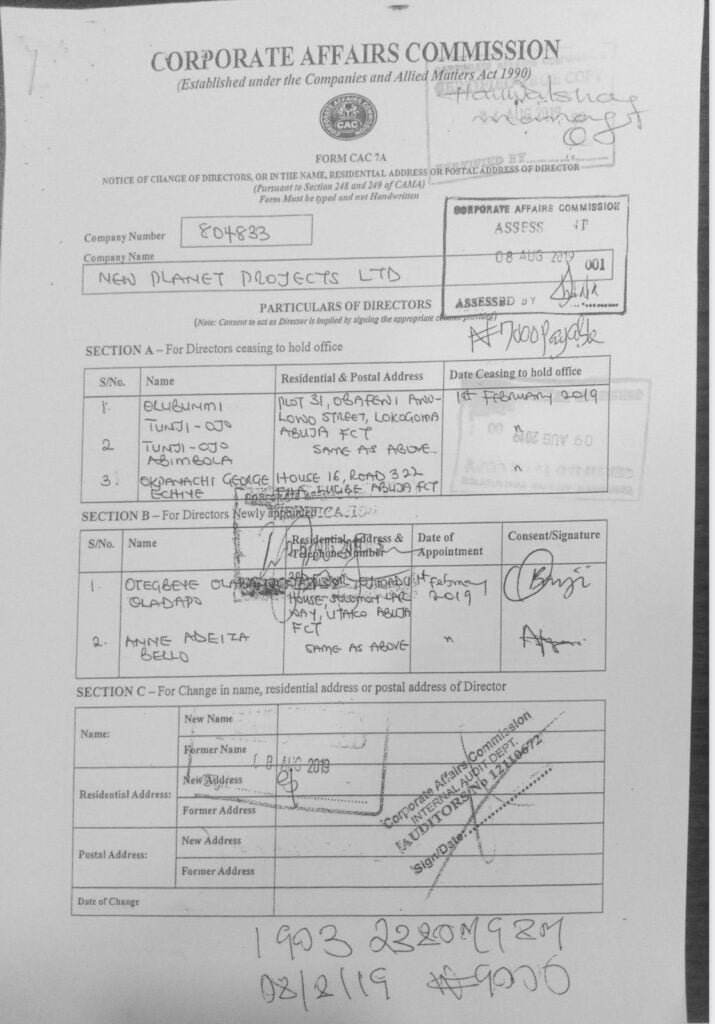 CORPORATE AFFAIRS COMMISSION
(Established under the Companies and Allied Matters Act 1990)
CORPORATE AFFAIRS COMMISSION
CAC
FORM CAC 7A
NOTICE OF CHANGE OF DIRECTORS, OR IN THE NAME, RESIDENTIAL ADDRESS OR POSTAL ADDRESS OF DIRECTOR
(Pursuant to Section 248 and 249 of CAMA)
Form Must be typed and not Handwritten
CERTIFIED BY
CORPORATE AFFAIRS COMMISSION
ASSESS
08 AUG 2019
001
ASSESSED BY
Company Number 804833
Company Name
NEW PLANET PROJECTS LTD
PARTICULARS OF DIRECTORS
(Note: Consent to act as Director is implied by signing the appropriate column provided)
₦7000 Payable
SECTION A – For Directors ceasing to hold office
S/No. Name Residential & Postal Address Date Ceasing to hold office
1. OLUBUNMI PLOT 31, OBAFEMI AWO- 1st February 2019
TUNJI-OJO LOWO STREET, LOKOGOMA
ABUJA FCT
2 TUNJI-OJO SAME AS ABOVE. "
ABIMBOLA
3. OKPANACHI GEORGE HOUSE 16, ROAD 322 "
ECHIYE LUGBE ABUJA FCT
09 AUG 2019
SECTION B – For Directors Newly appointed
S/No. Name Residential Address & Telephone Number Date of Appointment Consent/Signature
1. OTEGBEYE 1st February
OLADAPO HOUSE, SOLOMON LAR 2019
WAY, UTAKO ABUJA
FCT
2. ANNE ADEIZA SAME AS ABOVE "
BELLO
SECTION C – For Change in name, residential address or postal address of Director
Name: New Name
Former Name
08 AUG 2019
Residential Address: New Address
Former Address
Postal Address: New Address
Former Address
Date of Change
Corporate Affairs Commission
INTERNAL AUDIT DEPT.
AUDITORS/No 12110672
Sign/Date:
08/2/19 ₦9000